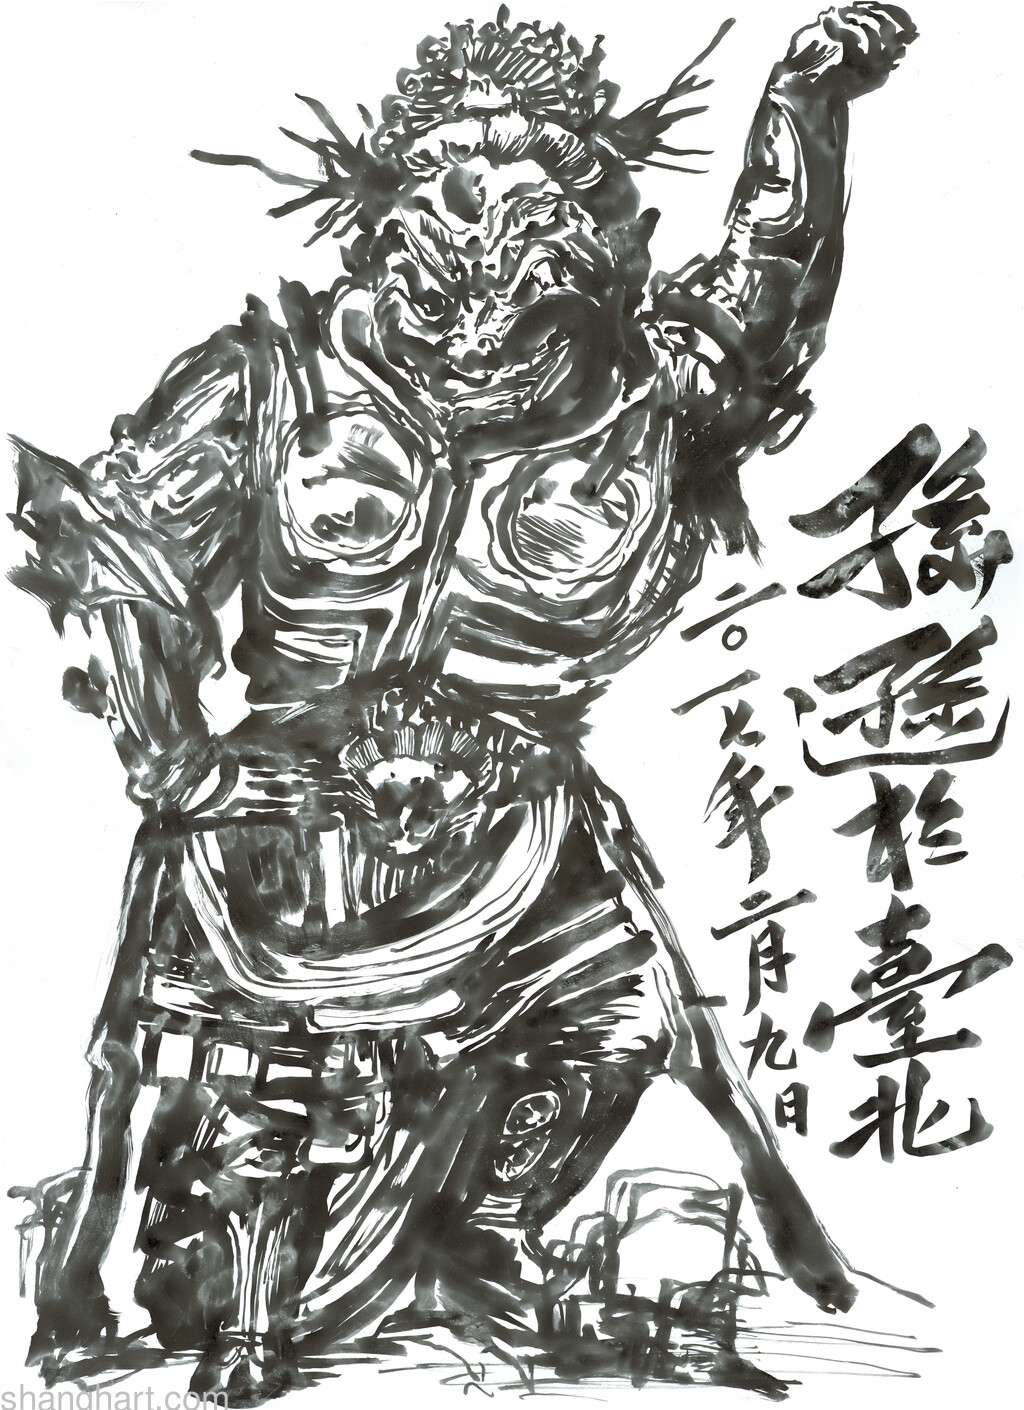 孫遜於臺北
二〇一七年二月九日
shanghart.com